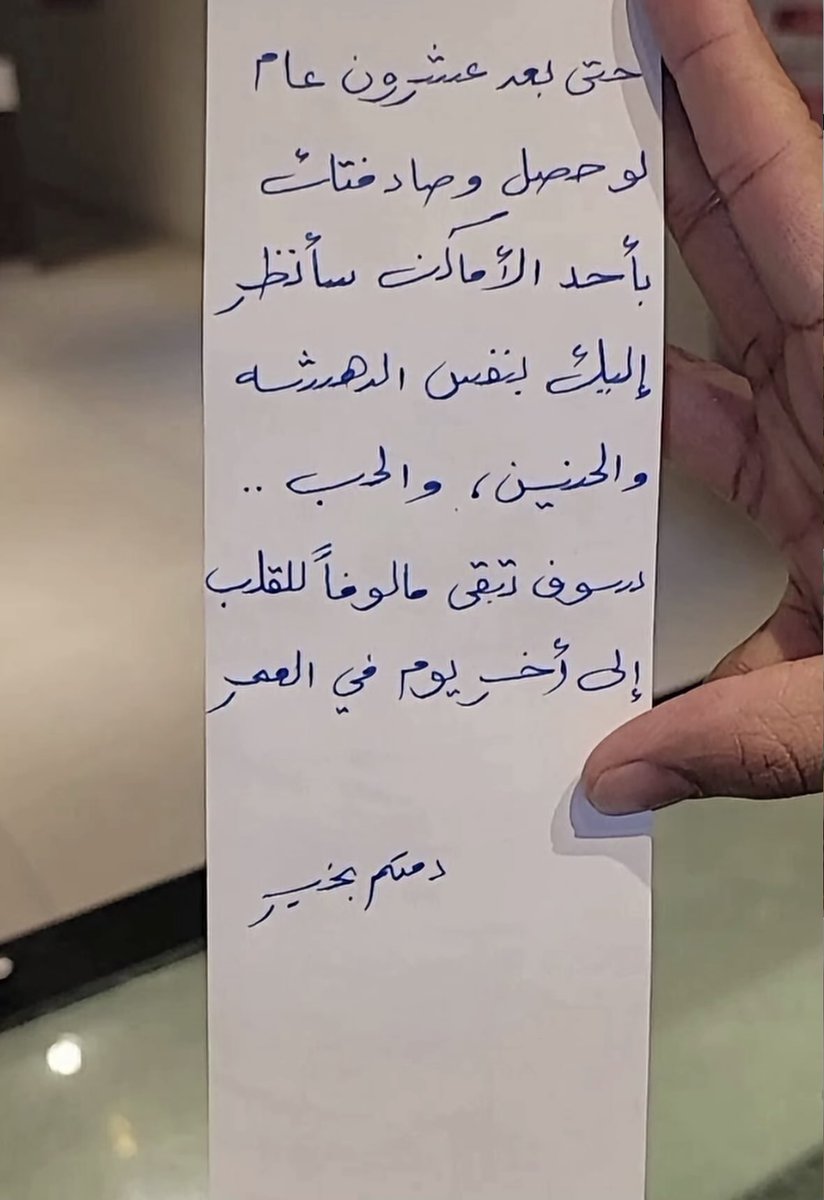 حتى بعد عشرون عام
لو حصل وصادفتك
بأحد الأماكن سأنظر
إليك بنفس الدهشه
والحنين، والحب ..
وسوف تبقى مالوفاً للقلب
إلى أخر يوم في العمر
دمتم بخير